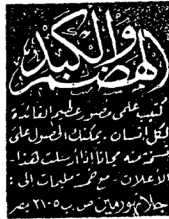 الهضم
والكبد
كتيب علمى مصور عظيم الفائدة
لكل انسان . يمكنك الحصول على
نسخة منه مجانا اذا ارسلت هذا
الاعلان . مع خمسة مليمات الى :
جلانهورمين ص . ب ٢١٠٥ مصر